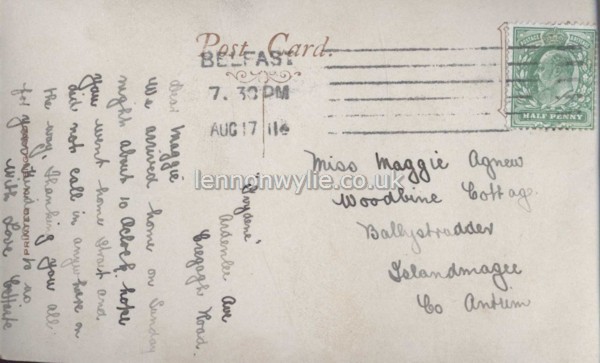 Post Card.
BELFAST
7. 30 PM
AUG 17 11
HALF PENNY
Miss Maggie Agnew
Woodbine Cottage
Ballystrudder
Islandmagee
Co Antrim
lennonwylie.co.uk
Ardenlee Ave
Cregagh Road.
Dear Maggie
We arrived home on Sunday
night about 10 o'clock, hope
you went home strait and
did not call in anywhere on
the way, thanking you all
for your to us
with Love